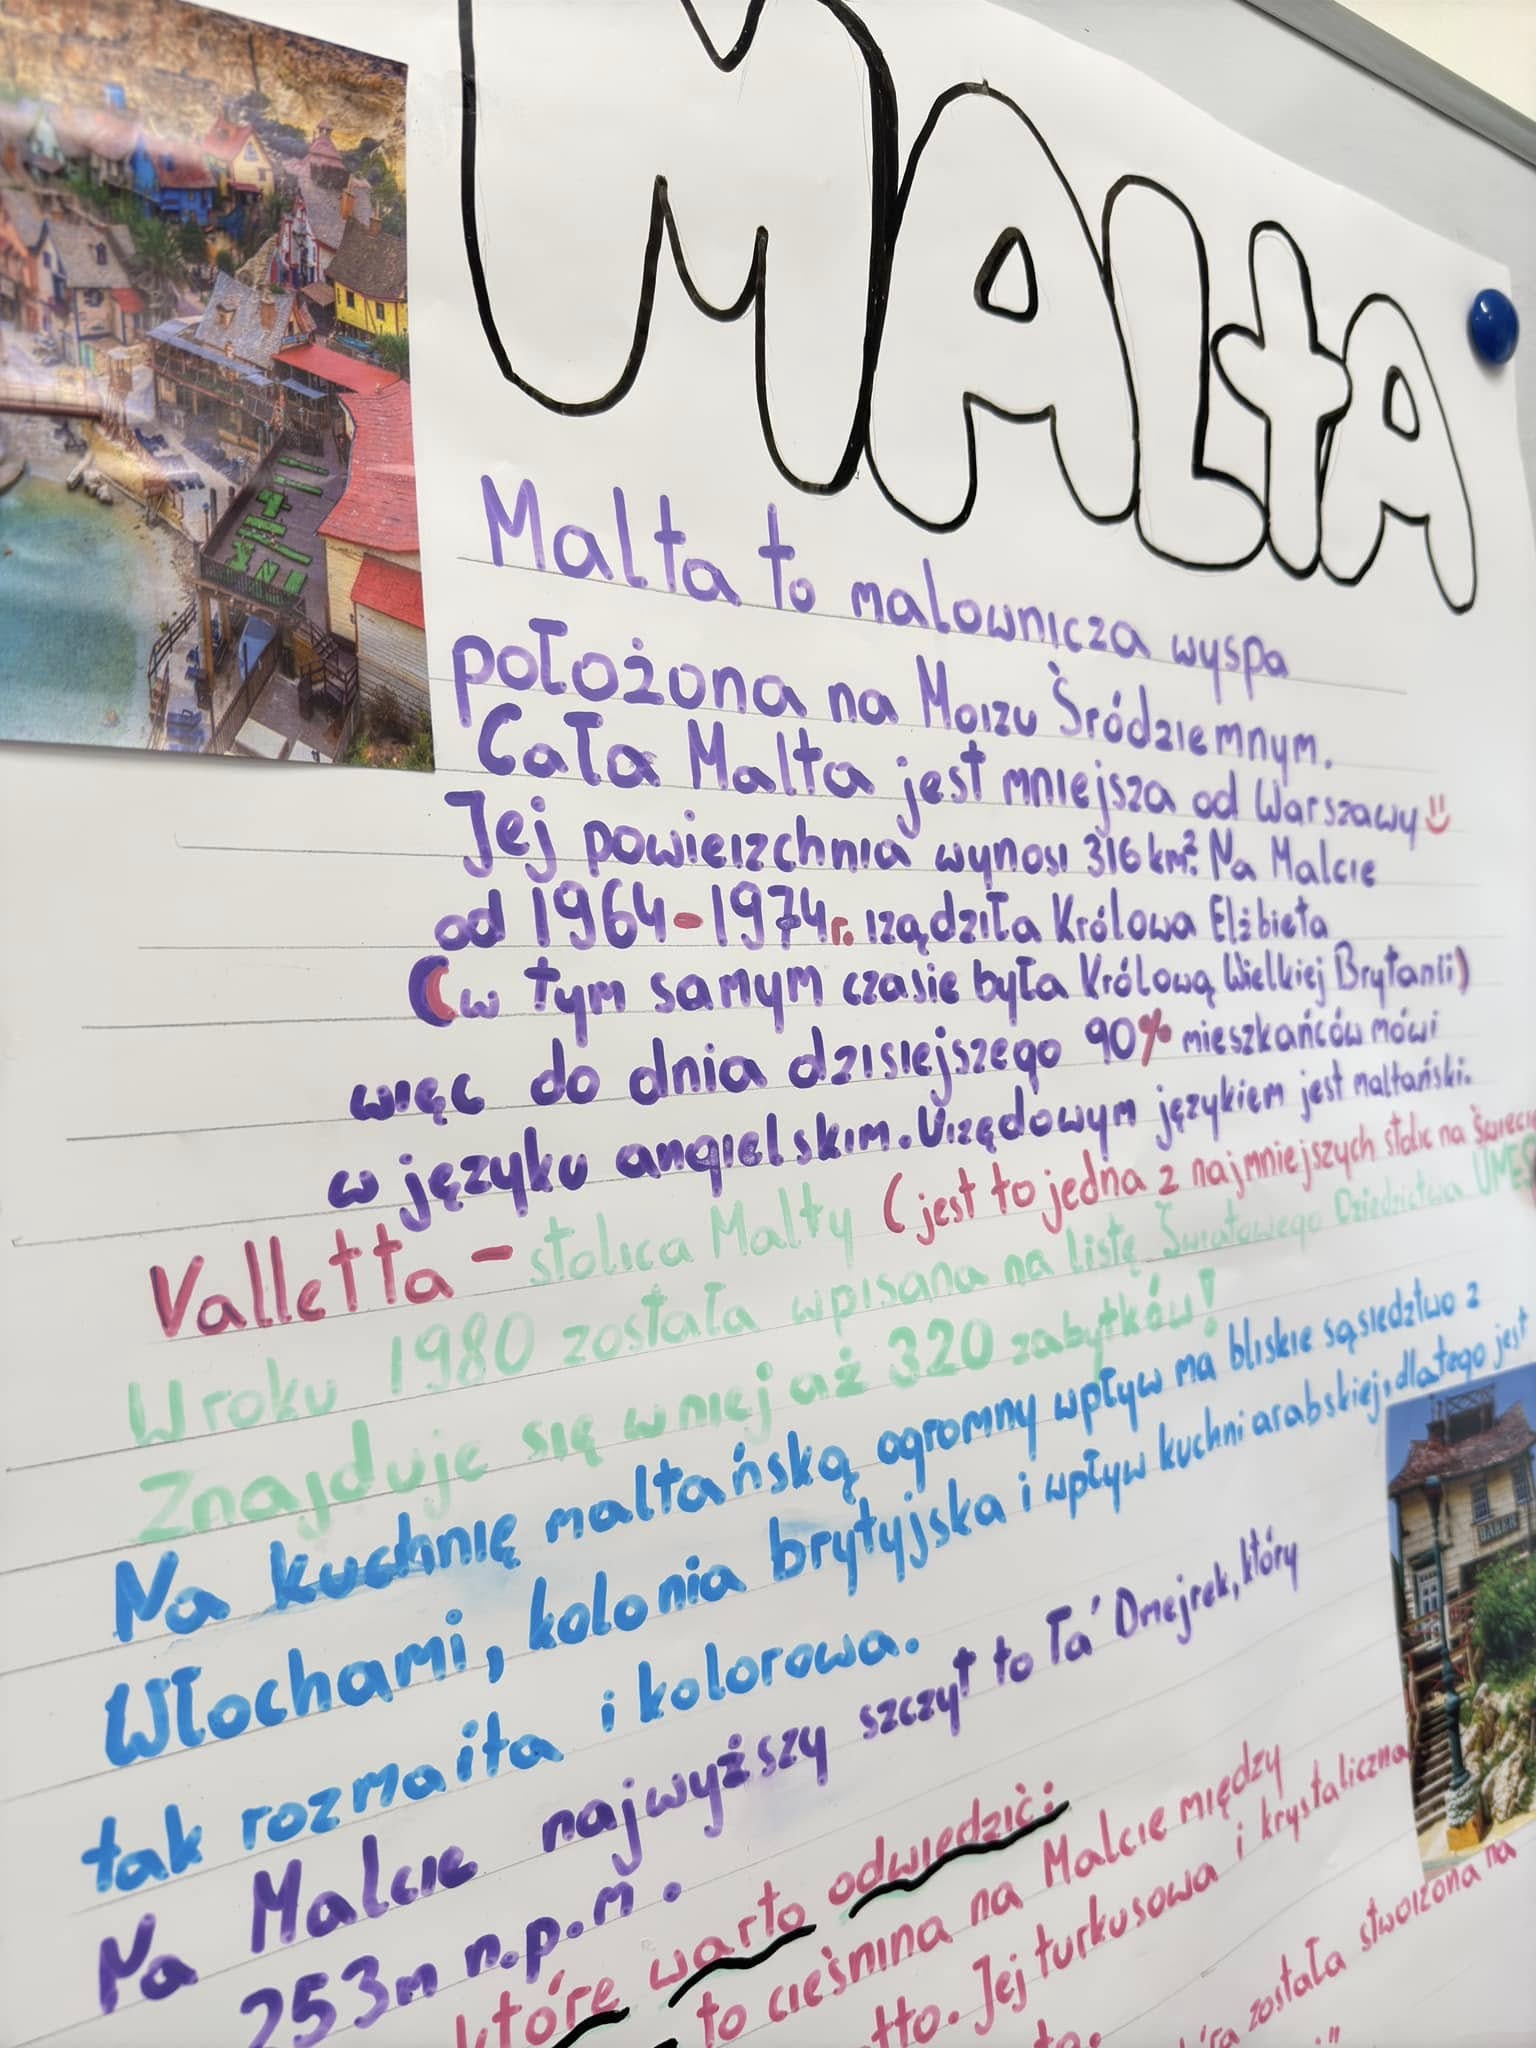 MALTA
Malta to malownicza wyspa
położona na Morzu Śródziemnym.
Cała Malta jest mniejsza od Warszawy
Jej powierzchnia wynosi 316 km². Na Malcie
od 1964-1974r. rządziła Królowa Elżbieta
(w tym samym czasie była Królową Wielkiej Brytanii)
więc do dnia dzisiejszego 90% mieszkańców mówi
w języku angielskim. Urzędowym językiem jest maltański.
Valletta - stolica Malty (jest to jedna z najmniejszych stolic na
W roku 1980 została wpisana na listę Światowego Dziedzictwa
Znajduje się w niej aż 320 zabytków!
Na kuchnię maltańską ogromny wpływ ma bliskie sąsiedztwo z
Włochami, kolonia brytyjska i wpływ kuchni arabskiej, dlatego jest
tak rozmaita i kolorowa.
BAKER
Na Malcie najwyższy szczyt to Ta' Dmejrek, który
253m n.p.m.
które warto odwiedzić:
to cieśnina na Malcie między
Jej turkusowa i krystaliczna
została stworzona na